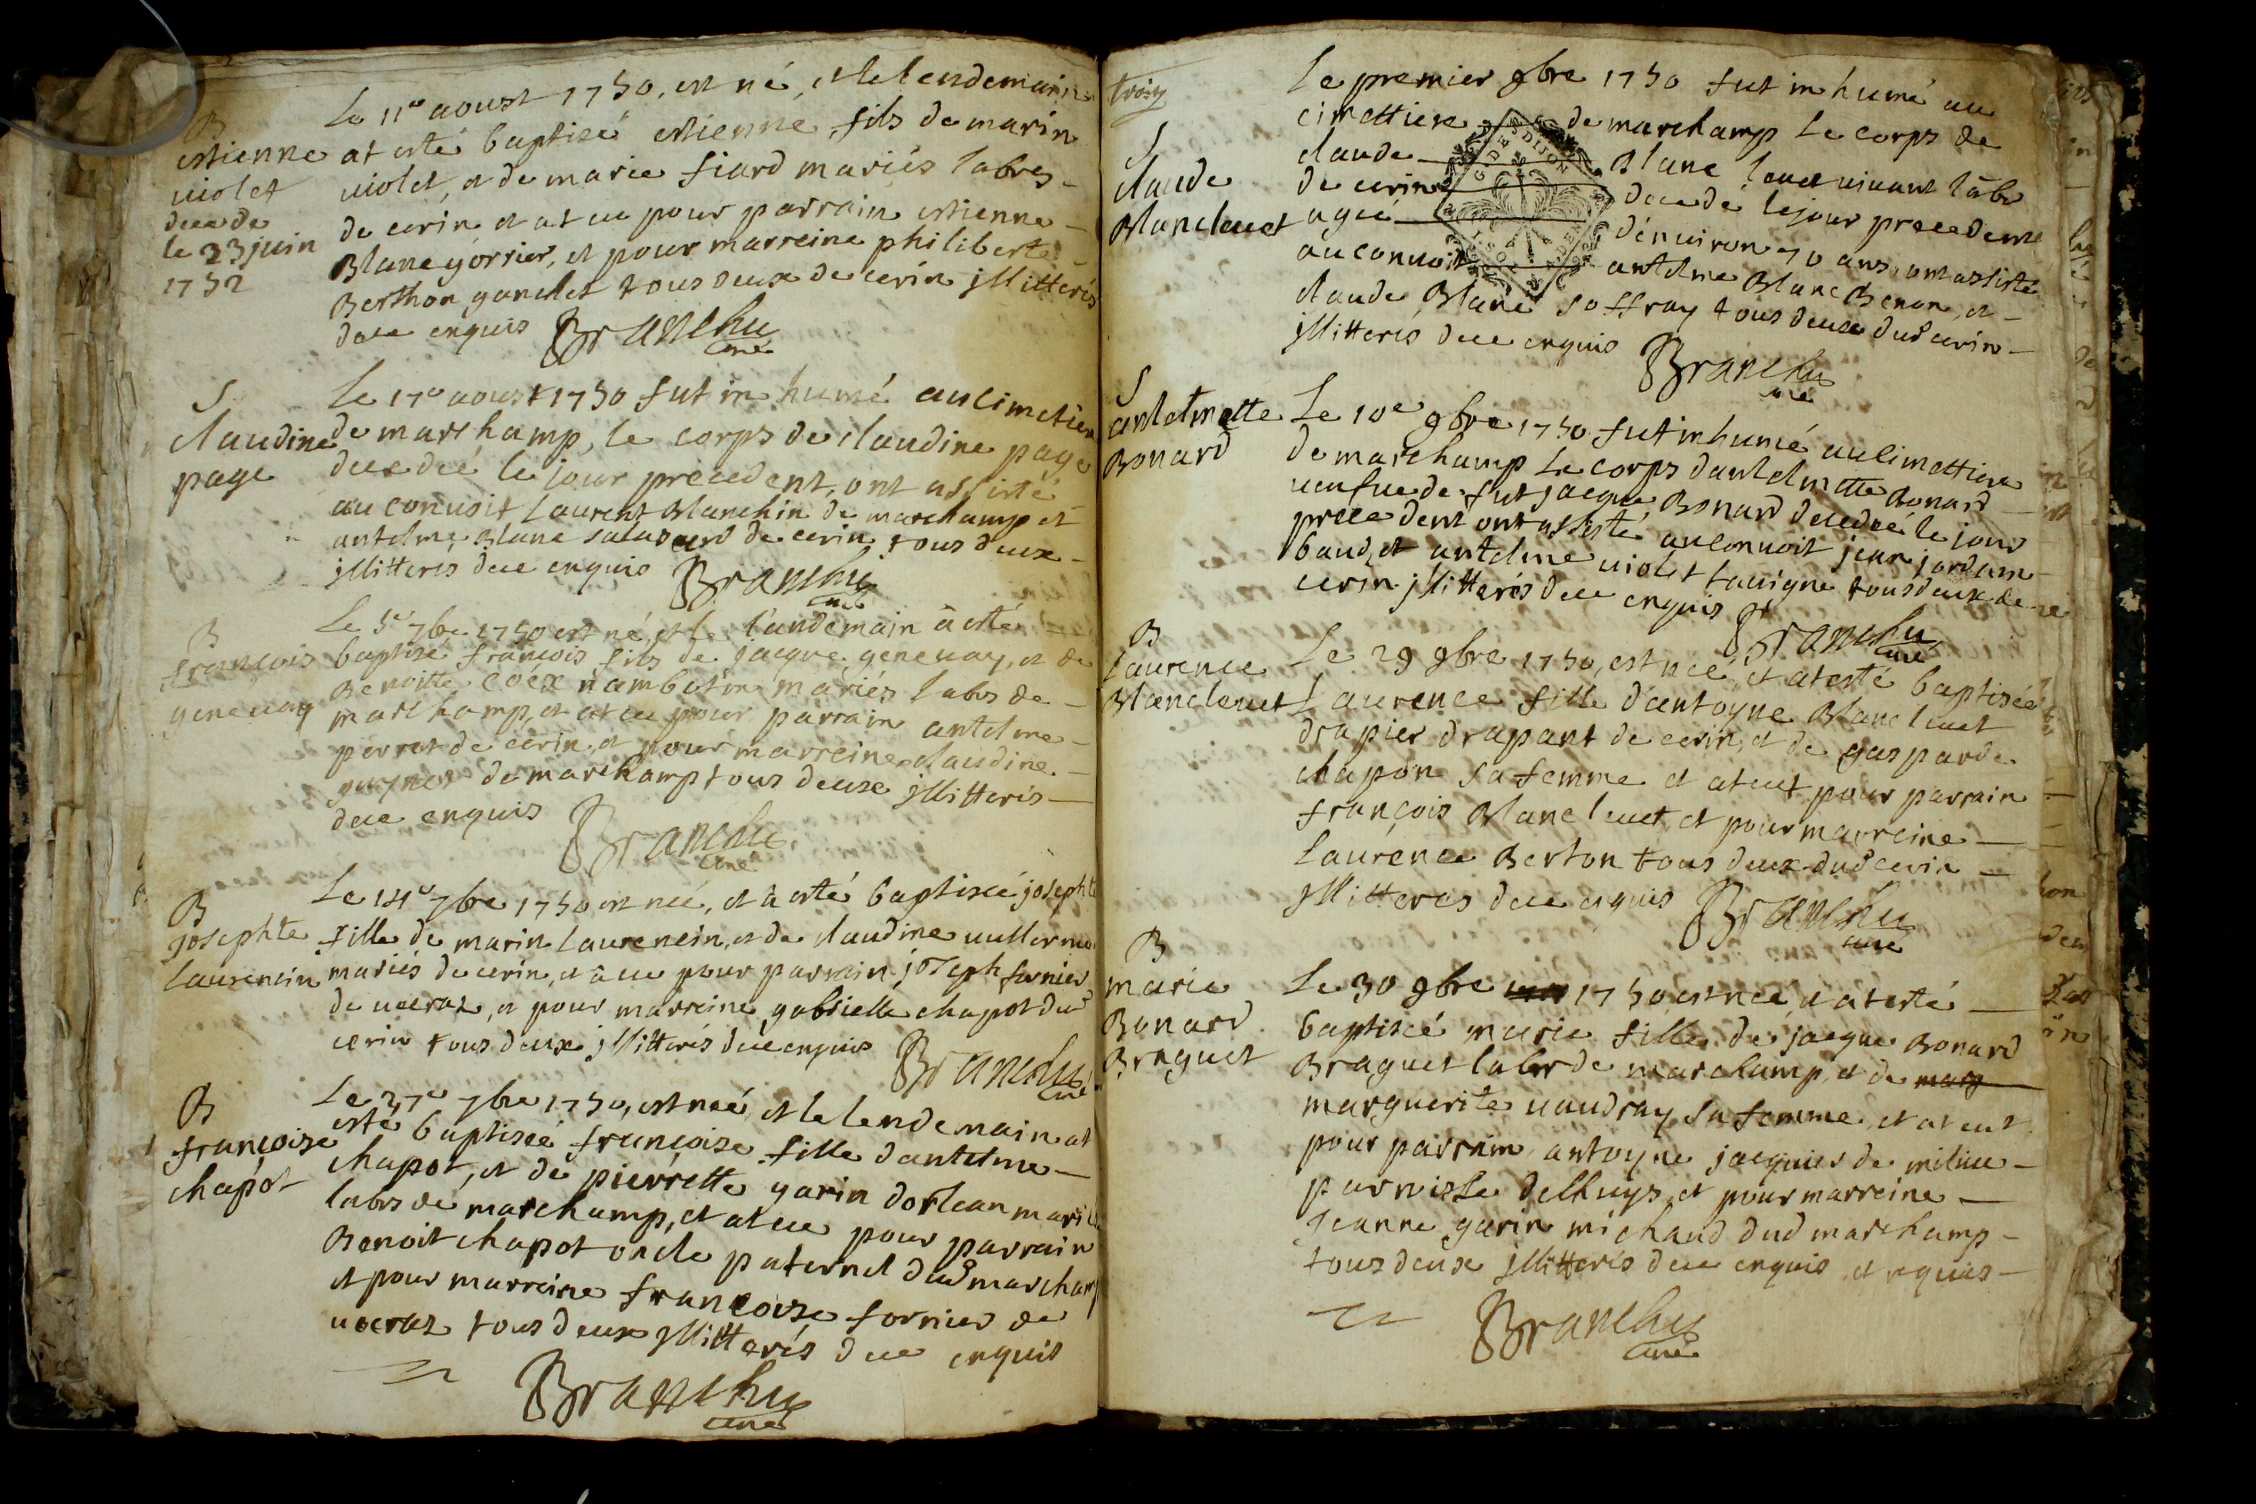 B
estienne
violet
decede
le 23 juin
1752
Le 11e aoust 1750, est né, et le lendemain
at esté baptisé estienne, fils de marin
violet, et de marie fiard mariés labrs-
de cerin et at eu pour parrain estienne
Blanc gorrier, et pour marreine philiberte
Berthon gonclet tous deux de cerin jllitterés
dece enquis Branchu
curé
S
claudine
page
Le 17e aoust 1750 fut in humé au cimetiere
de marchamp, le corps de claudine page
decedeé le jour precedent, ont assisté
au convoit Laurent Blanchin de marchamp et
antelme Blanc salavard de cerin tous deux
jllitteres dece enquis Branchu
curé
B
françois
genevay
Le 5e 7bre 1750 est né, et le landemain à esté
baptisé françois fils de jacque genevay, et de
Benoitte coex nambotin mariés labrs de
marchamp, et at eu pour parrain antelme
perrot de cerin, et pour marreine claudine
de marchamp tous deux jllitteris
dece enquis Branchu
curé
B
josephte
Laurencin
Le 14e 7bre 1750 est neé, et à esté baptiseé josephte
fille de marin Laurencin, et de claudine vullermo
mariés de cerin, et à eu pour parrain joseph fornier
de vecraz, et pour marreine gabrielle chapot dud
cerin tous deux jllitterés dece enquis Branchu
curé
B
françoise
chapot
Le 27e 7bre 1750, est neé, et le lendemain at
esté baptiseé françoise fille d'antelme
chapot, et de pierrette garin dorlean mariés
labrs de marchamp, et at eu pour parrain
Benoit chapot oncle paternel dud marchamp
et pour marreine françoise fornier de
vecraz tous deux jllitterés dece enquis
Branchu
curé
troisz
S
claude
Blanc levet
Le premier 9bre 1750 fut in humé au
cimettiere de marchamp Le corps de
claude Blanc levet vivant labr
de cerin decedé le jour precedent
ageé d'environ 70 ans, ont assisté
au convoit antelme Blanc Benon, et
claude Blanc soffray tous deux dud cerin
jllitteres dece enquis Branchu
curé
G. DES DIJON
S
antelmette
Bonard
Le 10e 9bre 1750 fut inhumé au cimettiere
de marchamp Le corps d'antelmette Bonard
veufve de fut jacque Bonard decedeé le jour
precedent ont assisté au convoit jean jordam
baud, et antelme violet tavigne tous deux de
cerin jllitterés dece enquis Branchu
curé
B
Laurence
Blanc levet
Le 29 9bre 1750, est neé, et at esté baptiseé
Laurence fille d'antoyne Blanc levet
drapier drapant de cerin, et de gasparde
chapon sa femme et at eut pour parrain
françois Blanc levet, et pour marreine
Laurence Berton tous deux dud cerin
jllitteres dece enquis Branchu
curé
B
marie
Bonard
Braguet
Le 30 9bre 1750, est neé, et at esté
baptiseé marie fille de jacque Bonard
Braguet labr de marchamp, et de marg
marguerite vaudray sa femme, et at eut
pour parrain antoyne jacquier de milieu
parroisse delhuys, et pour marreine
jeanne garin michaud dud marchamp
tous deux jllitterés dece enquis et requis
Branchu
curé